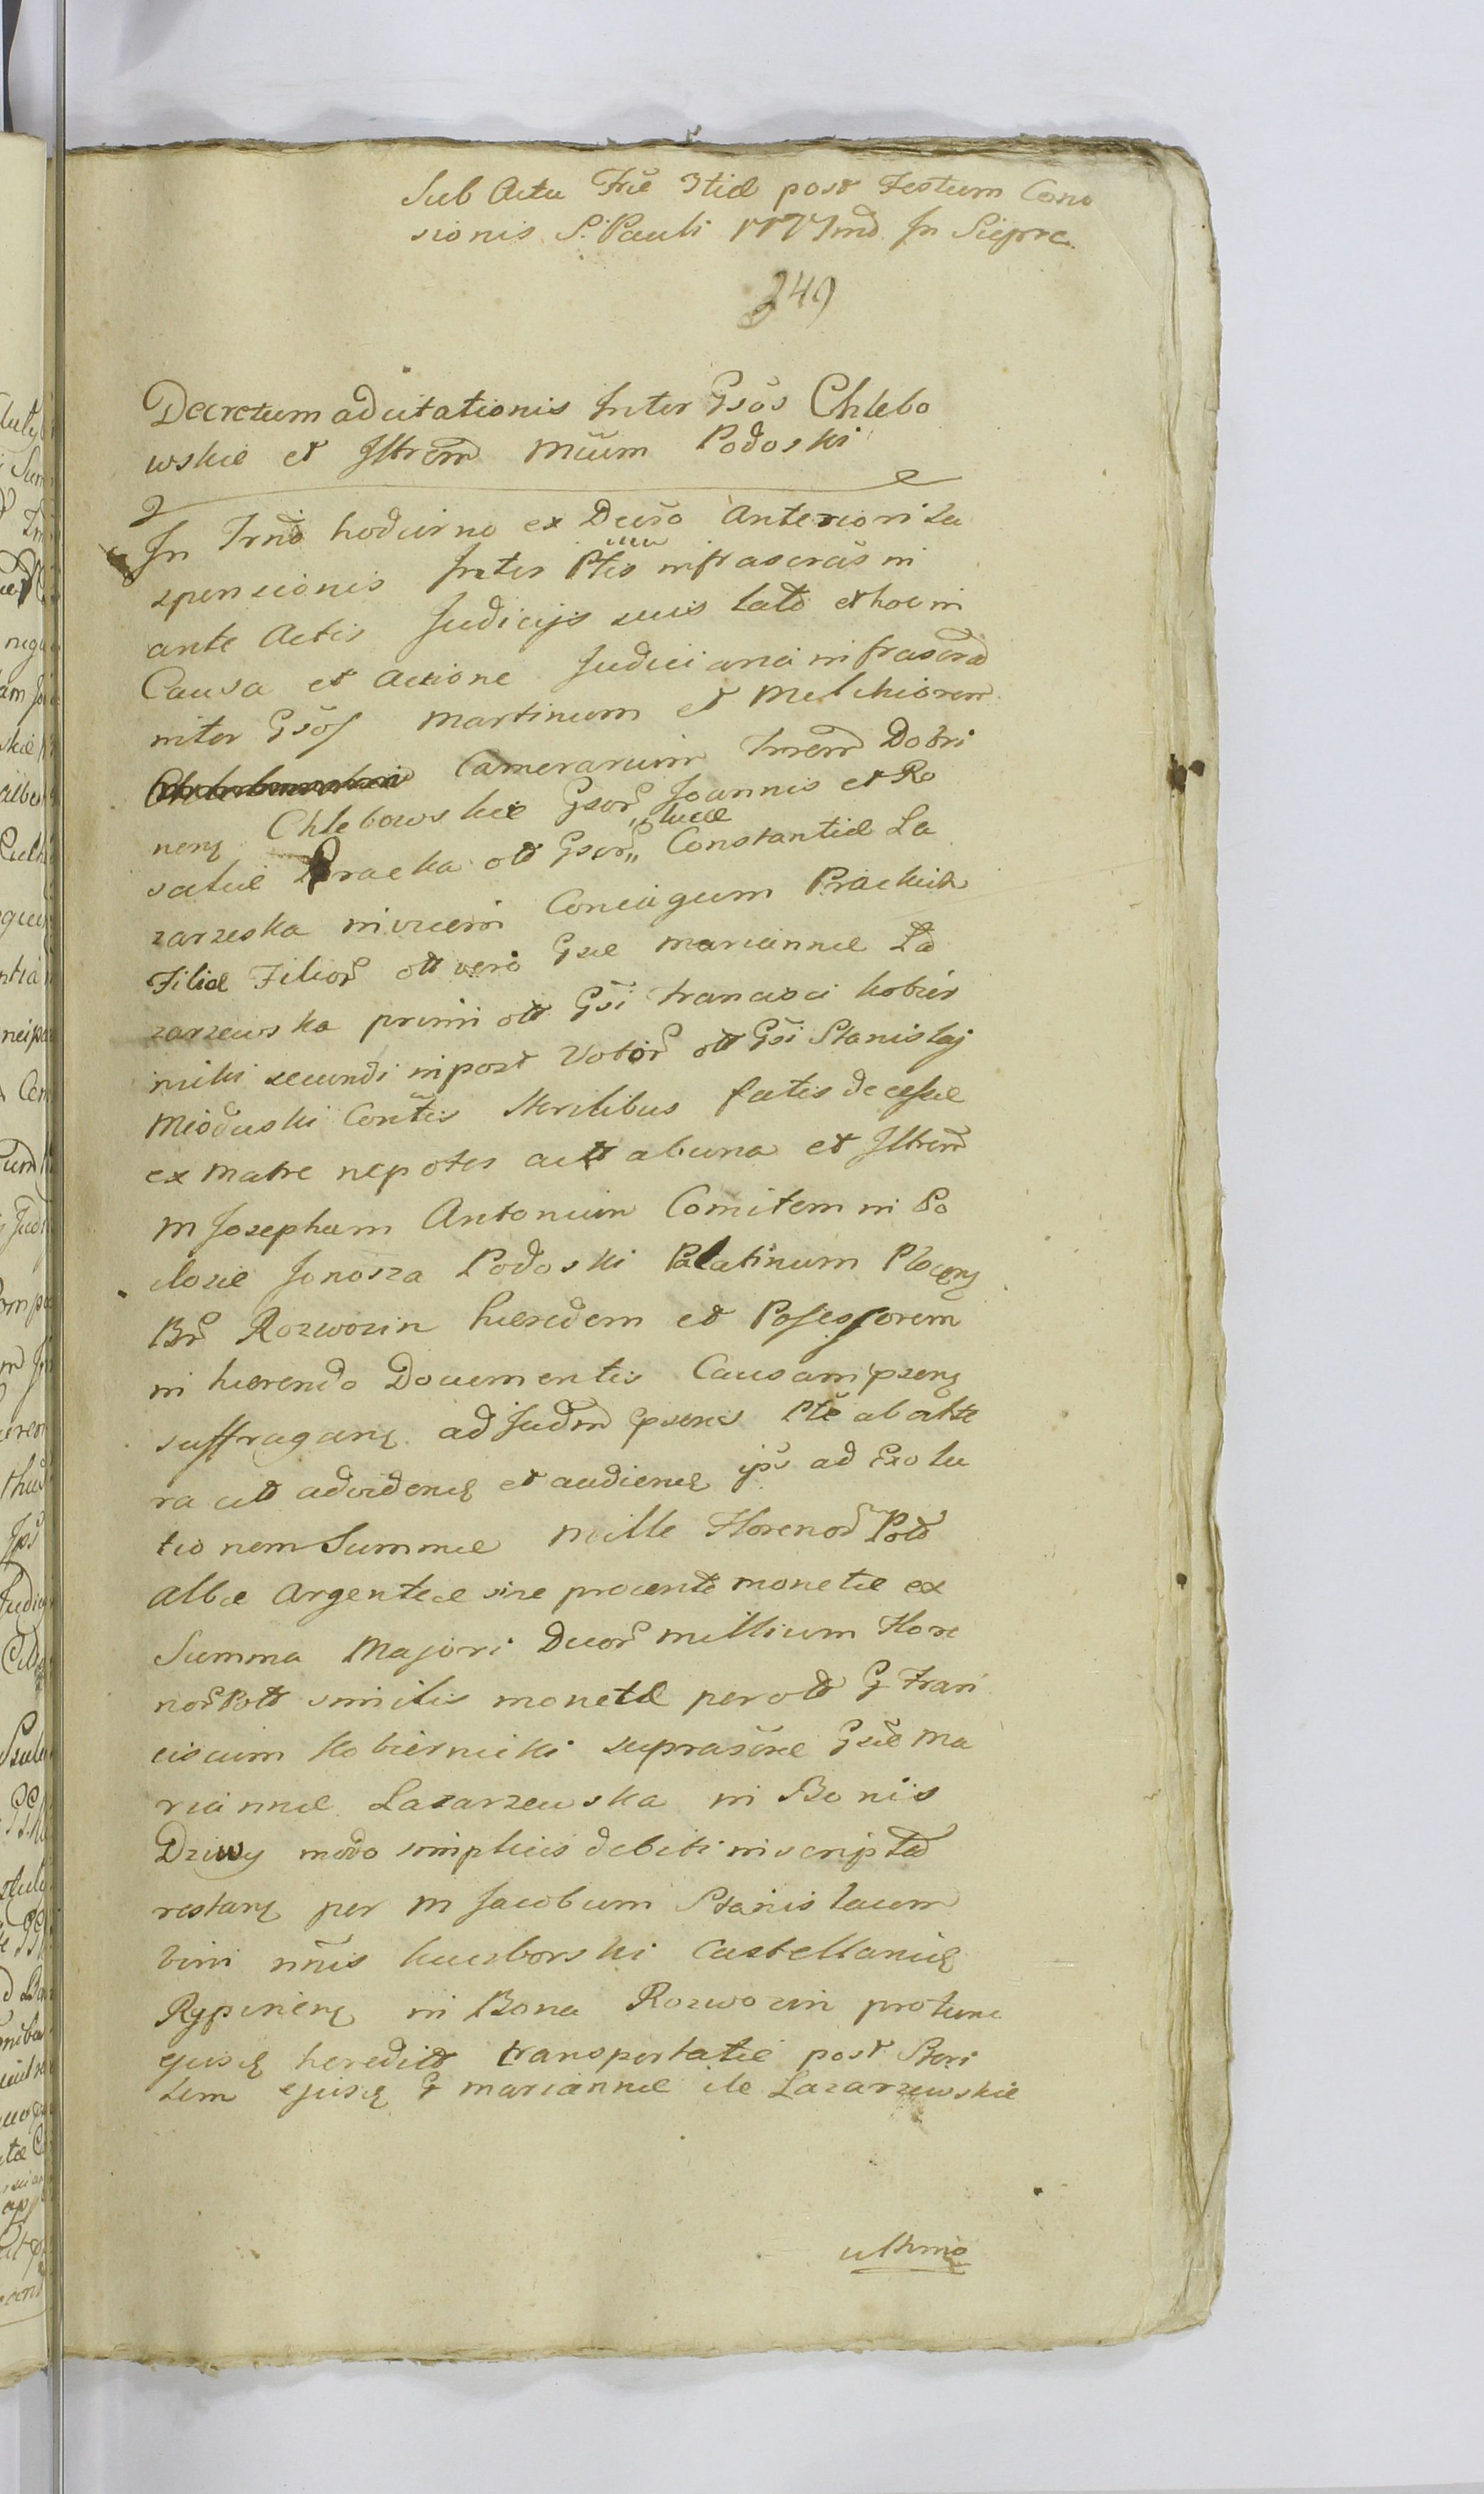 Sub Actu Friæ 3tiæ post Festum Conv
sionis S. Pauli 1777mo In Sieprc.
249
Decretum adcitationis Inter Gsōs Chlebo
wskie et Illrem Mcum Podoski
In Trno hodierno ex Decro Anteriori Su
spensionis Inter Ptes infrascras in
ante Actis Judicijs suis lato et hoc in
Causa et Actione Judiciaria infrascra
inter Gsos Martinum et Melchiorem
Camerarium Dobri
neng Chlebowskie Gsor Joannis et Ro
saliæ Pracka olt Gsor Lucæ Constantiæ La
zarzeska invicem Conjugum Prackich
Filiæ Filior olt vero Gsæ Mariannæ La
zarzewska primi olt Gsi Francisci Kobier
nicki secundi in post Votor olt Gsi Stanislaj
Mioduski Contis Sterilibus fatis decessæ
ex Matre nepotes act ab una et Illrem
M Josephum Antonium Comitem in Po
dosie Junosza Podoski Palatinum Plocens
Br Rozwozin hæredem et Possessorem
in hærendo Documentis Causam pseng
suffragang ad Judm psens Pte ab alte
ra cit ad videng et audieng ips ad Exolu
tionem Summæ Mille Florenor Polo
albæ Argenteæ sive procente monetæ ex
Summa Majori Duor Millium Flore
nor Poll similis monetæ per olt G Fran
ciscum Kobiernicki suprascræ Gsæ Ma
riannæ Lazarzewska in Bonis
Dziwy modo simplicis debiti inscripta
restang per M Jacobum Stanislaum
bini nnis Kuczborski Castellanid
Rypineng in Bona Rozwozin protunc
ejusd heredit transportatæ post Steri
lem ejusd G Mariannæ de Lazarzewskie
ultimo